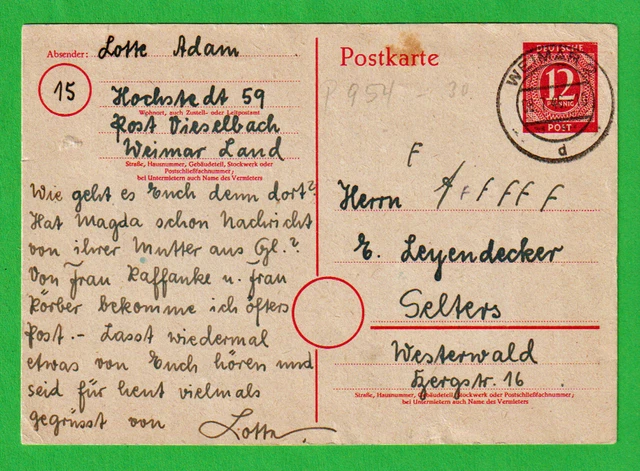 Absender: Lotte Adam
15
Hochstedt 59
Wohnort, auch Zustell- oder Leitpostamt
Post Vieselbach
Weimar Land
Straße, Hausnummer, Gebäudeteil, Stockwerk oder
Postschließfachnummer;
bei Untermietern auch Name des Vermieters
Wie geht es Euch denn dort?
Hat Magda schon Nachricht
von ihrer Mutter aus Gl.?
Von Frau Raffanke u. Frau
Körber bekomme ich öfters
Post. - Lasst wiedermal
etwas von Euch hören und
seid für heut vielmals
gegrüsst von
Lotte
Postkarte
P 954 - 30
DEUTSCHE
12
PFENNIG
POST
WEIMAR
d
F
F F F F
Herrn
E. Leyendecker
Selters
Westerwald
Bergstr. 16
Straße, Hausnummer, Gebäudeteil, Stockwerk oder Postschließfachnummer;
bei Untermietern auch Name des Vermieters